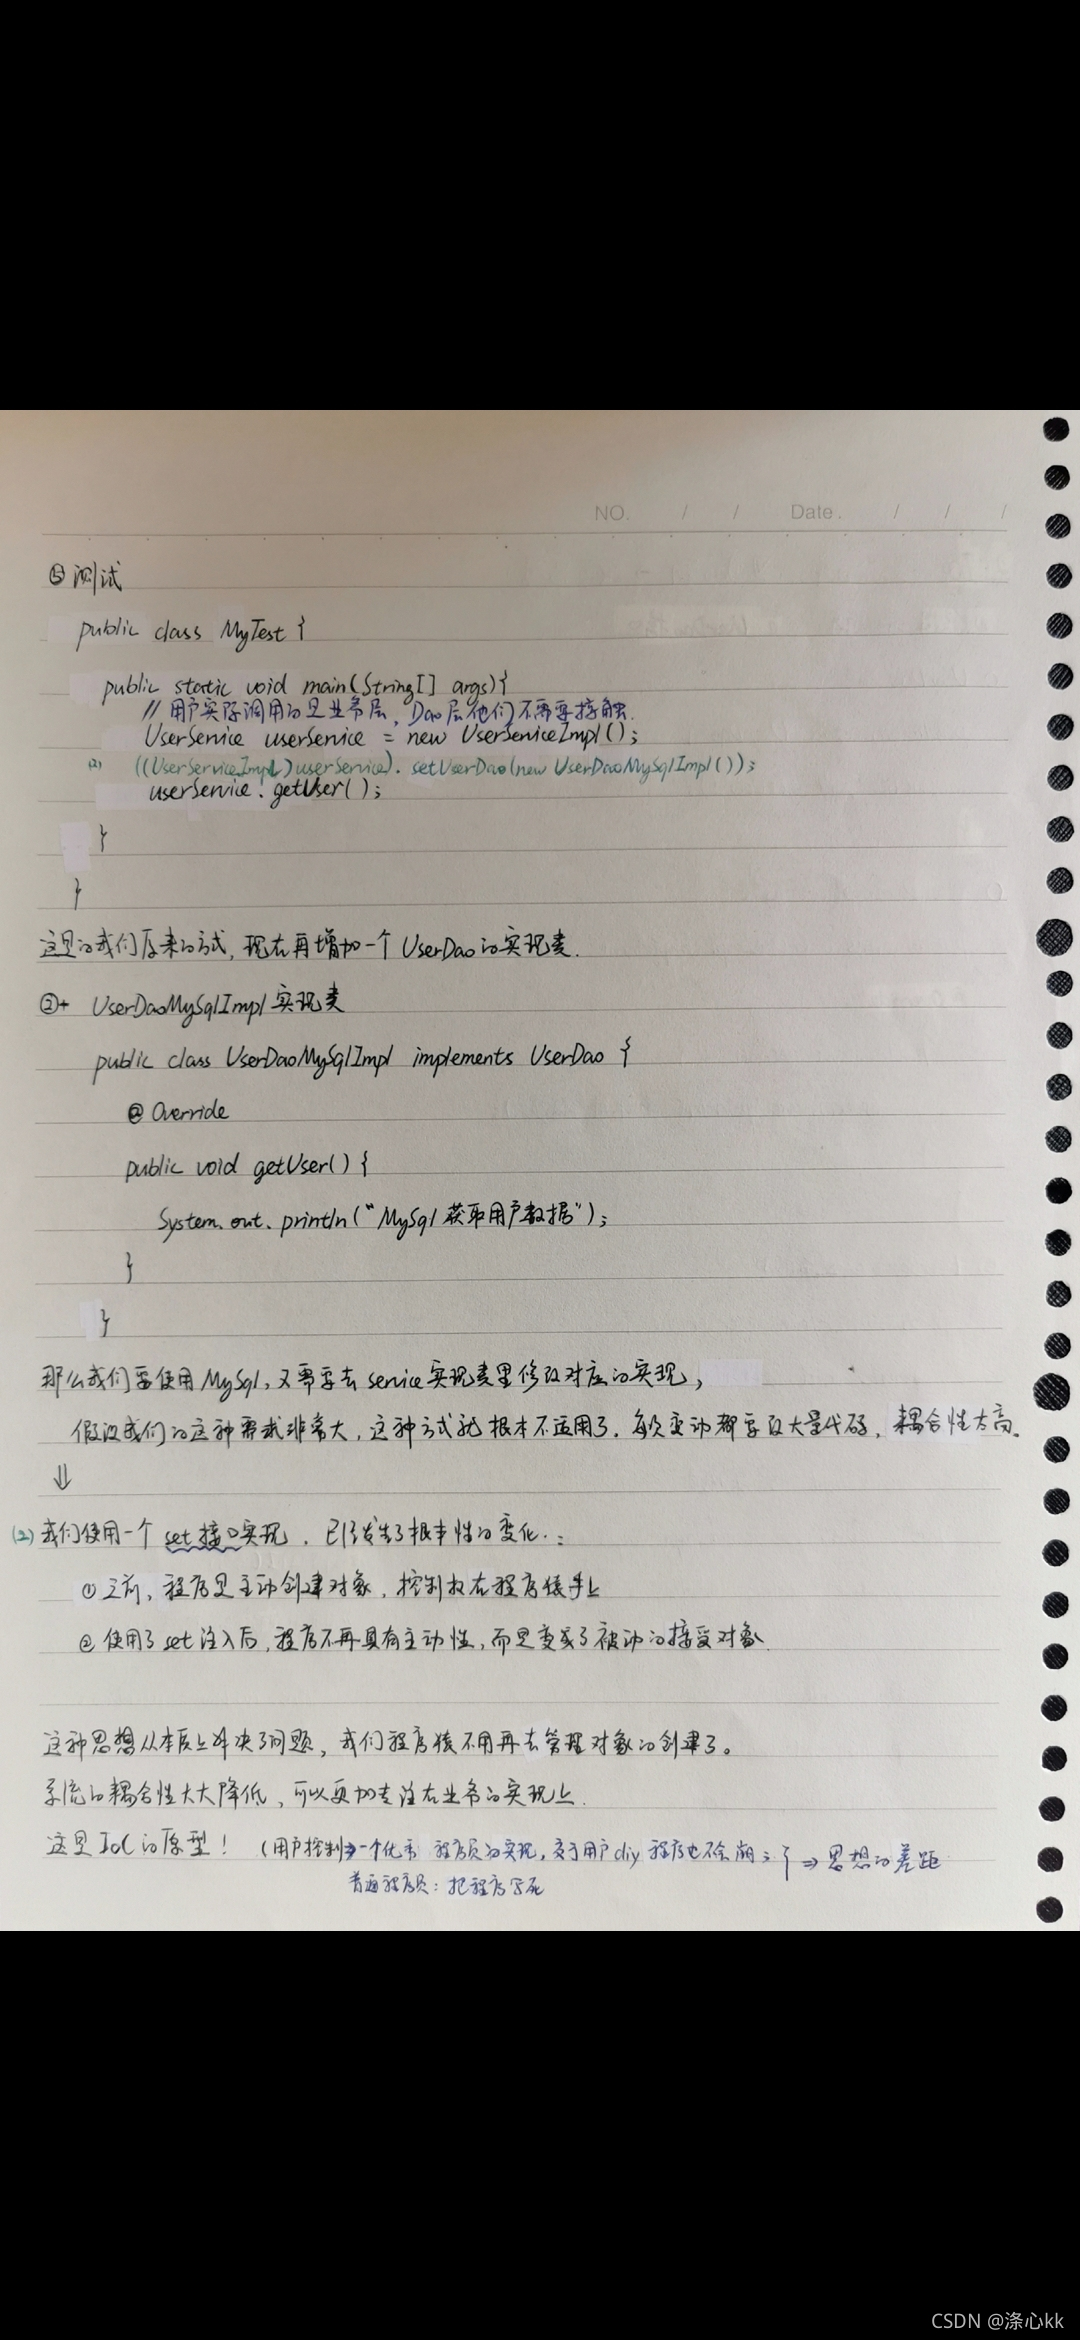 NO. / / Date. / / /
⑤ 测试
public class MyTest {
public static void main(String[] args){
// 用户实际调用的是业务层，Dao层他们不需要接触.
UserService userService = new UserServiceImpl();
(2) ((UserServiceImpl)userService).setUserDao(new UserDaoMySqlImpl());
userService.getUser();
}
}
这是我们原来的方式，现在再增加一个 UserDao的实现类.
②+ UserDaoMySqlImpl 实现类
public class UserDaoMySqlImpl implements UserDao {
@Override
public void getUser() {
System.out.println("MySql 获取用户数据");
}
}
那么我们要使用MySql，又需要去 service实现类里修改对应的实现，
假设我们的这种需求非常大，这种方式就根本不适用了. 每次变动都要改大量代码，耦合性太高。
⇓
(2) 我们使用一个 set接口实现，已经发生了根本性的变化.:
① 之前，程序是主动创建对象，控制权在程序猿手上
② 使用了 set注入后，程序不再具有主动性，而是变成了被动的接受对象.
这种思想从本质上解决了问题，我们程序猿不用再去管理对象的创建了。
系统的耦合性大大降低，可以更加专注在业务的实现上.
这是IoC的原型！ (用户控制⇒一个优秀 程序员的实现，交于用户diy 程序也不会崩； ⇒ 思想的差距
普通程序员：把程序写死
CSDN @涤心kk